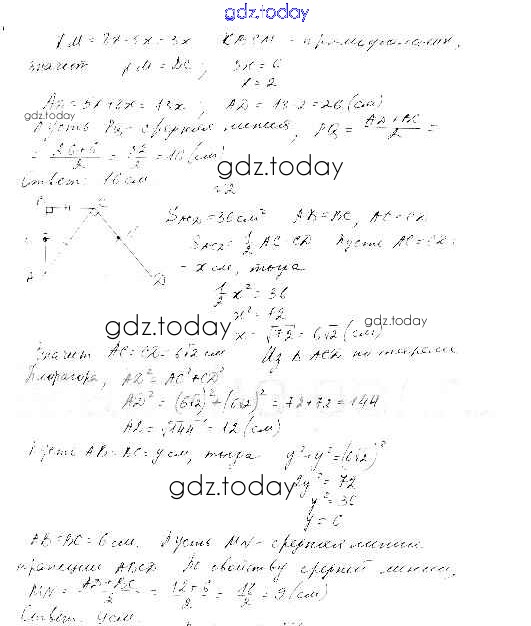 gdz.today
KM = 8x-5x=3x KBCM - прямоугольник,
значит KM = BC; 3x = 6
x = 2
AD = 5x+8x = 13x; AD = 13·2=26 (см)
gdz.today
Пусть PQ - средняя линия, PQ = (AD+BC)/2 =
= (26+6)/2 = 32/2 = 16 (см)
gdz.today
Ответ: 16 см
2
B C
S ACD = 36 см² AB=BC, AC=CD
S ACD = 1/2 AC·CD Пусть AC=CD=
= x см, тогда
1/2 x² = 36
x² = 72
gdz.today
x = √72 = 6√2 (см)
A D
Значит AC=CD=6√2 см Из Δ ACD по теореме
Пифагора, AD² = AC²+CD²
AD² = (6√2)²+(6√2)² = 72+72 = 144
AD = √144 = 12 (см)
Пусть AB=BC=y см, тогда y²+y²=(6√2)²
2y² = 72
gdz.today
y² = 36
y = 6
AB=BC=6 см. Пусть MN - средняя линия
трапеции ABCD По свойству средней линии,
MN = (AD+BC)/2 = (12+6)/2 = 18/2 = 9 (см)
Ответ: 9 см.
gdz.today